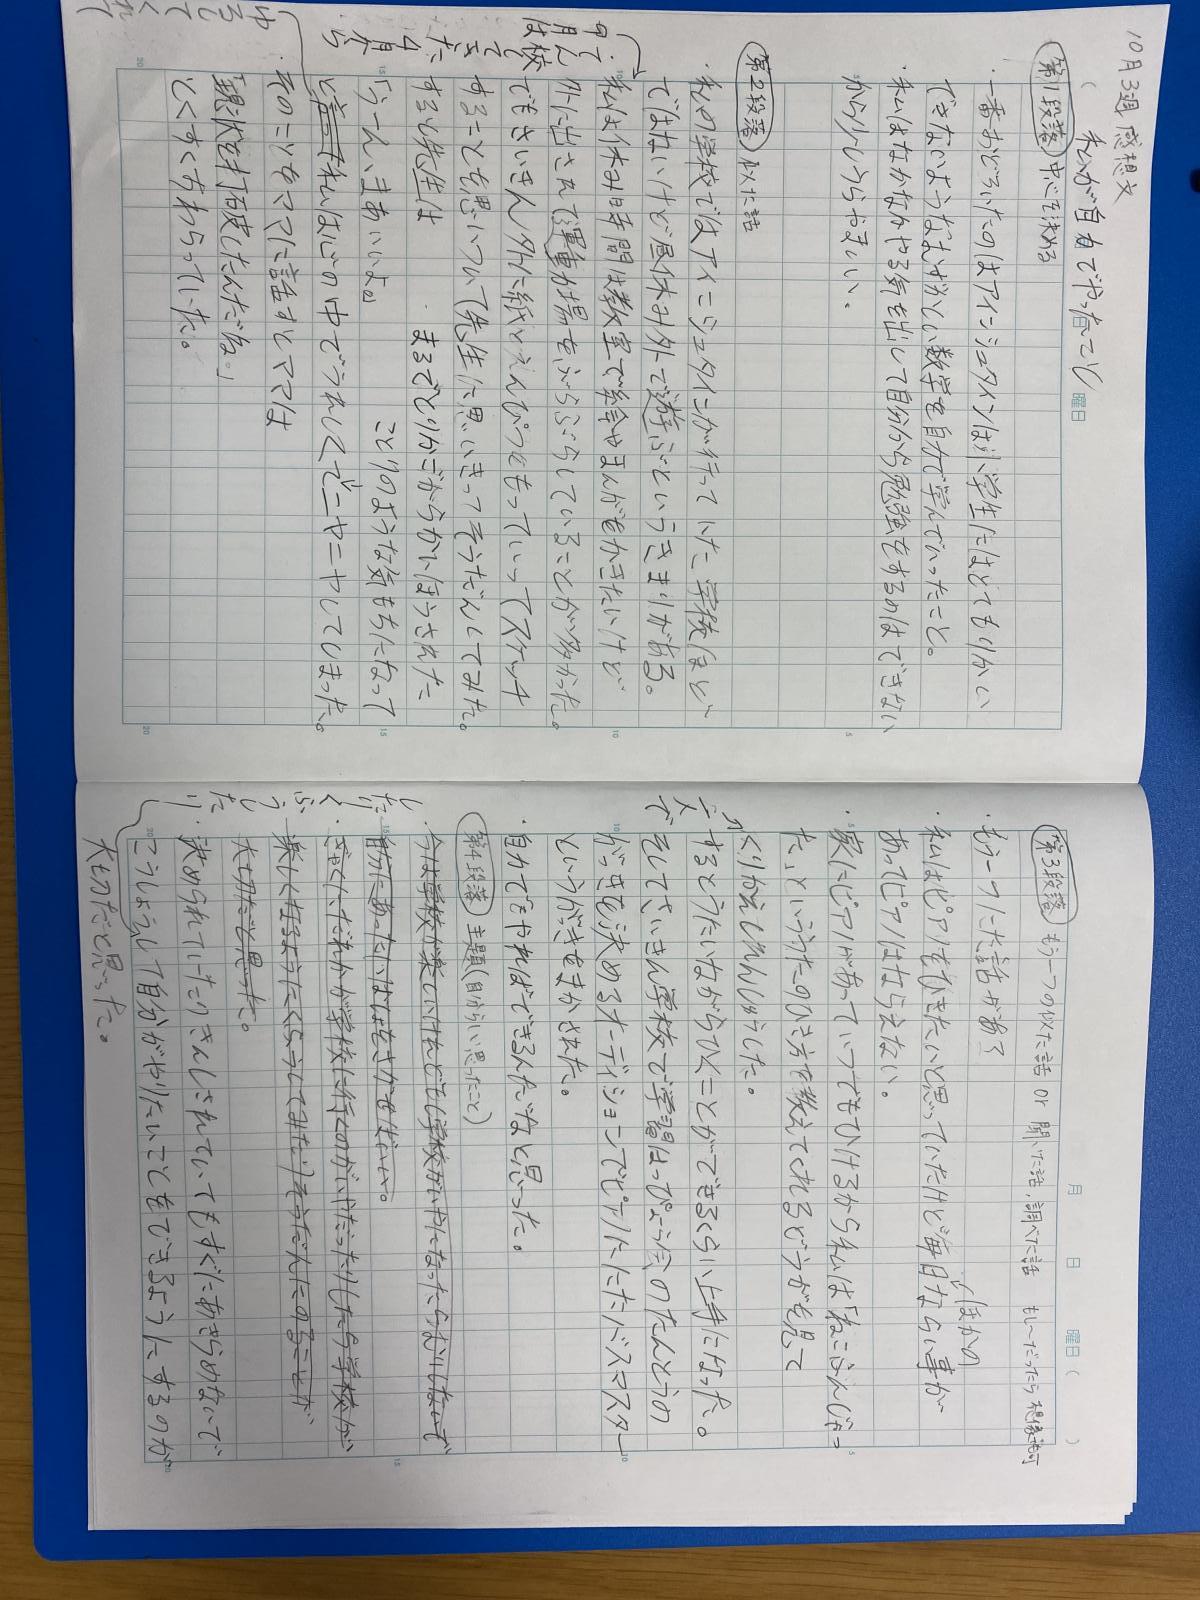 10月3週 感想文
私が自力でやったこと
第1段落 中心を決める
・一番おどろいたのはアインシュタインは小学生だけどとてもりかい
できないようなむずかしい数学を自力で学んでいったこと。
・私はなかなかやる気を出して自分から勉強をするのはできない
から少しうらやましい。
第2段落 似た話
・私の学校ではアインシュタインが行っていた学校ほど
ではないけど昼休み外で遊ぶというきまりがある。
私は休み時間は教室で絵やまんがをかきたいけど
外に出されて運動場をぶらぶらしていることが多かった。
でもさいきん外に紙とえんぴつをもっていってスケッチ
することを思いついて先生に思いきってそうだんしてみた。
すると先生は
「うーんまあいいよ。」
まるでとりかごからかいほうされた
ことりのような気もちになって
私は心の中でうれしくてニヤニヤしてしまった。
・そのことをママに話すとママは
「現状を打破したんだね。」
とくすくすわらっていた。
第3段落 もう一つの似た話 or 聞いた話、調べた話 もし〜だったら 想像も可
・もう一つ似た話がある
・私はピアノをひきたいと思っていたけど毎日ほかのならい事が
あってピアノはならえない。
家にピアノがあっていつでもひけるから私は「ねこふんじゃっ
た」というたのひき方を教えてくれるどうがを見て
くりかえしれんしゅうした。
するとうたいながらひくことができるくらい上手になった。
そしてさいきん学校で学習はっぴょう会のたんとうの
がっきを決めるオーディションでピアノににたバスマスター
というがっきをまかされた。
自力でもやればできるんだなと思った。
第4段落 主題(自分らしい思ったこと)
・決められていたりきんしされていてもすぐにあきらめないで
こうしょうして自分がやりたいことをできるようにするのが
大切だと思った。
月 日 曜日( )